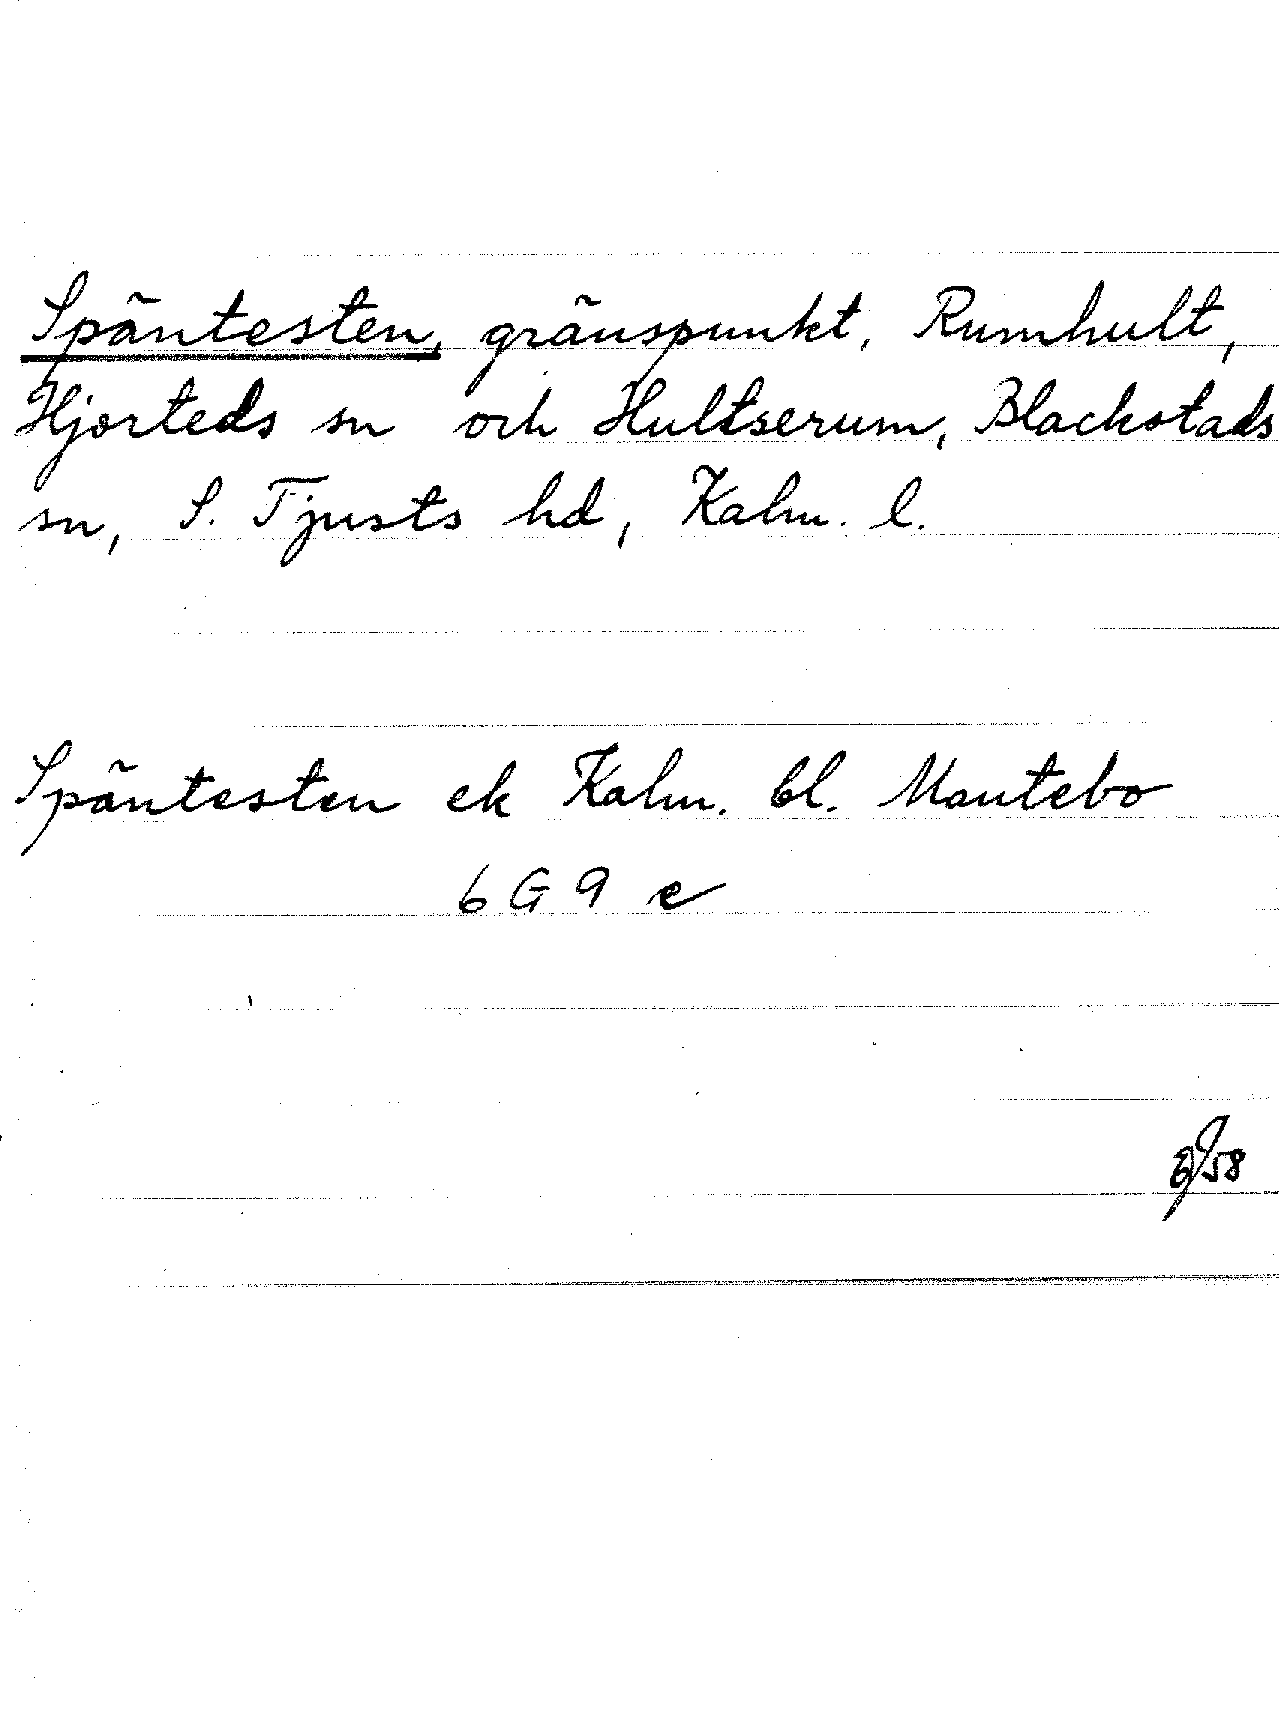 Späntesten, gränspunkt, Rumhult,
Hjorteds sn och Hultserum, Blackstads
sn, S. Tjusts hd, Kalm. l.
Späntesten ek Kalm. bl. Mantebo
6 G 9 e
58